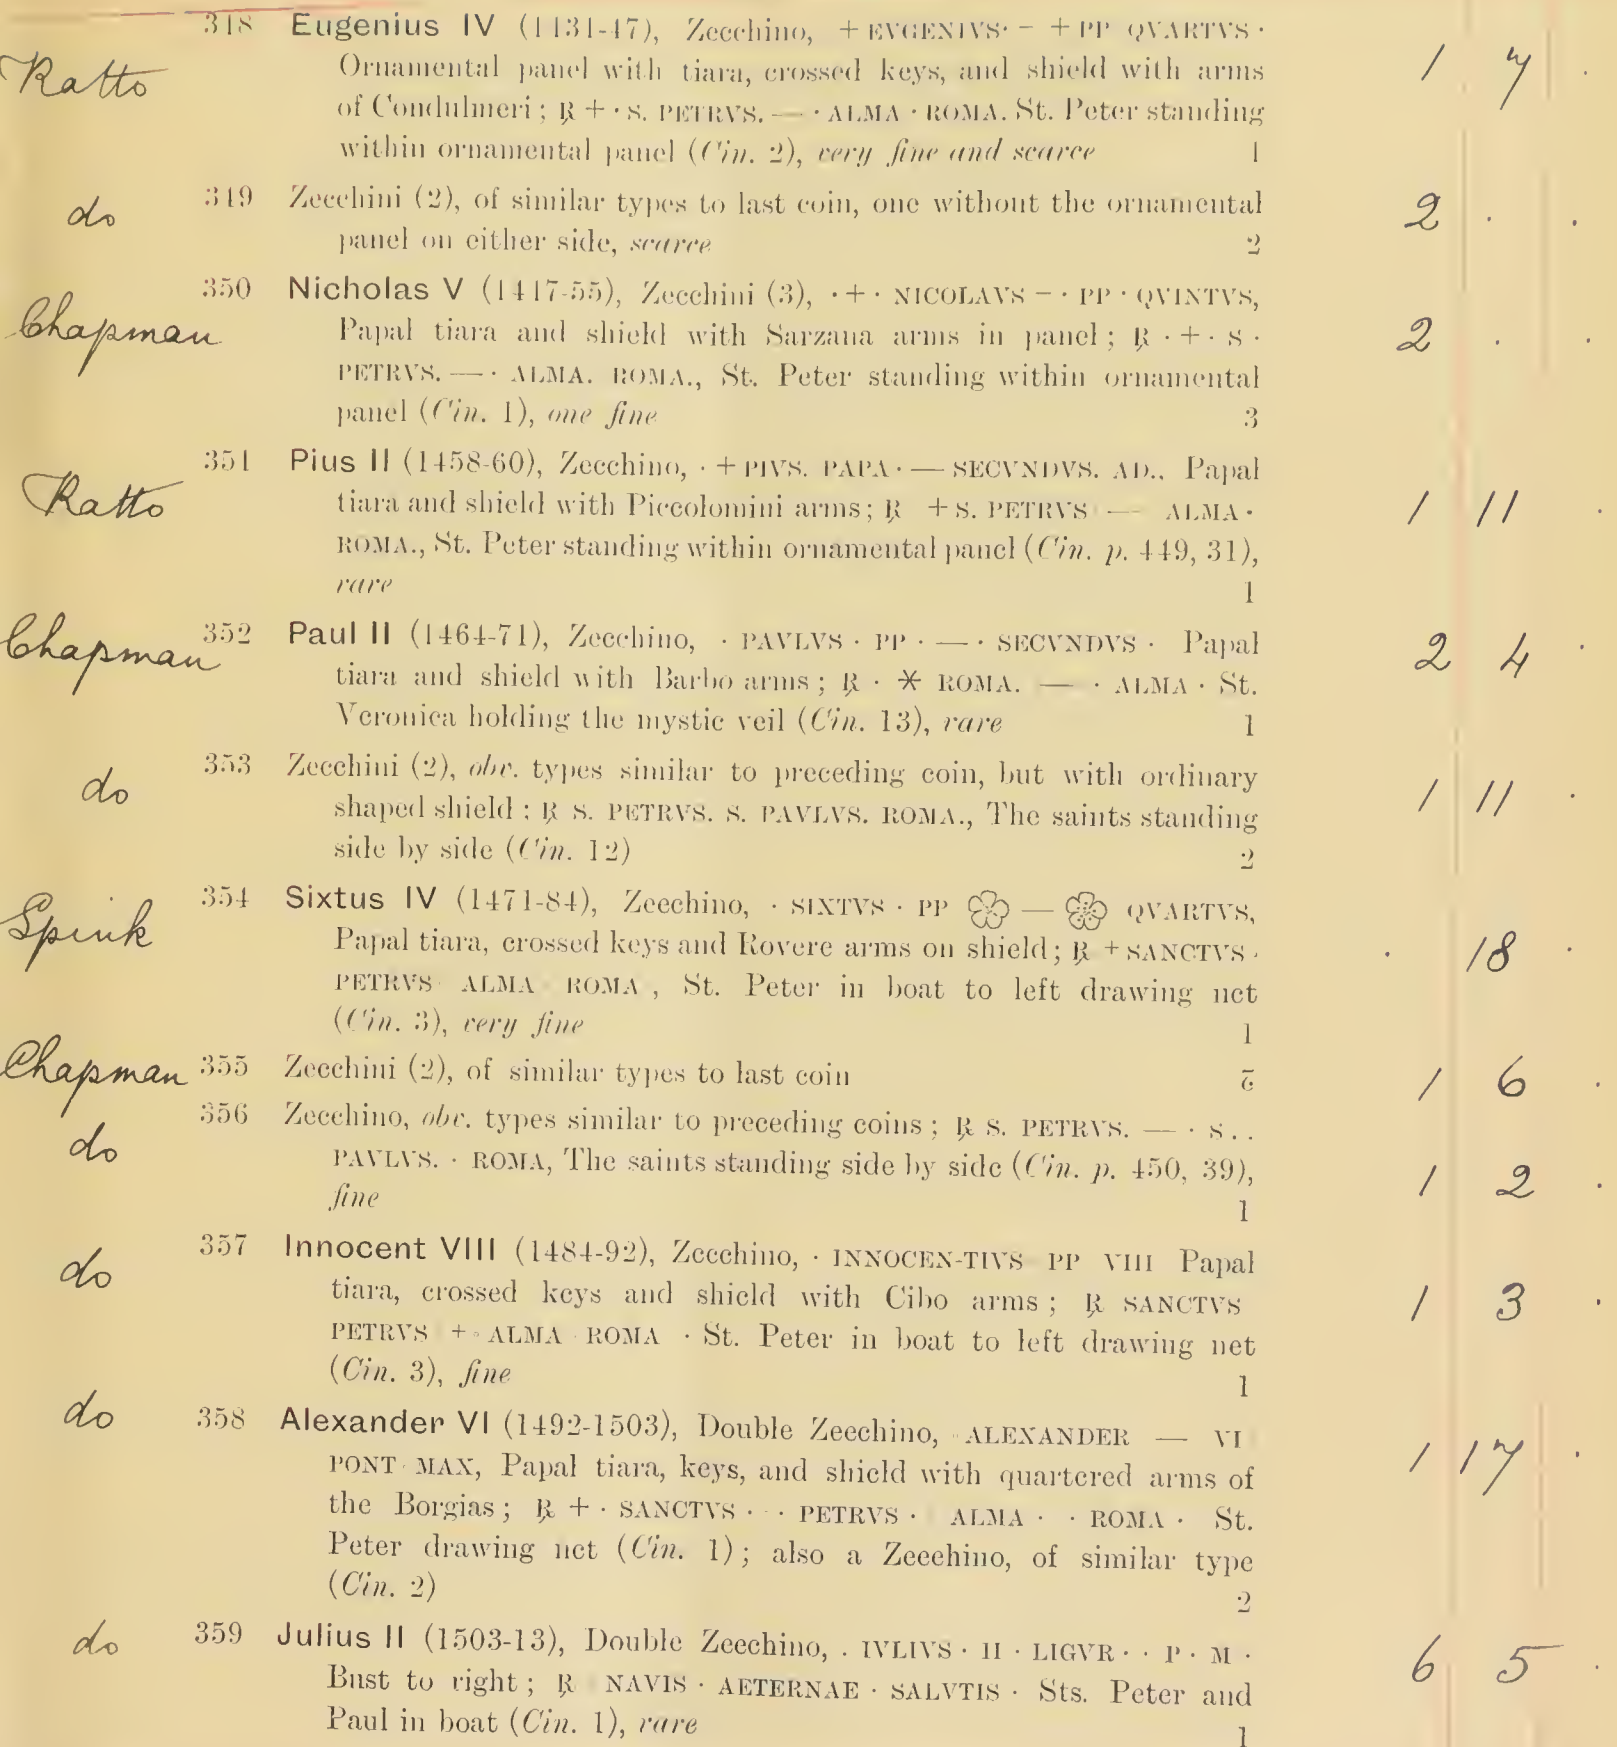 348 Eugenius IV (1431-47), Zecchino, + EVGENIVS · - + PP QVARTVS ·
Ratto Ornamental panel with tiara, crossed keys, and shield with arms 1 7 ·
of Condulmeri ; ℞ + · S. PETRVS. — · ALMA · ROMA. St. Peter standing
within ornamental panel (Cin. 2), very fine and scarce 1
do 349 Zecchini (2), of similar types to last coin, one without the ornamental 2 · ·
panel on either side, scarce 2
350 Nicholas V (1447-55), Zecchini (3), · + · NICOLAVS - · PP · QVINTVS,
Chapman Papal tiara and shield with Sarzana arms in panel ; ℞ · + · S · 2 · ·
PETRVS. — · ALMA. ROMA., St. Peter standing within ornamental
panel (Cin. 1), one fine 3
351 Pius II (1458-60), Zecchino, · + PIVS. PAPA · — SECVNDVS. AD., Papal
Ratto tiara and shield with Piccolomini arms ; ℞ + S. PETRVS — ALMA · 1 11 ·
ROMA., St. Peter standing within ornamental panel (Cin. p. 449, 31),
rare 1
Chapman 352 Paul II (1464-71), Zecchino, · PAVLVS · PP · — · SECVNDVS · Papal 2 4 ·
tiara and shield with Barbo arms ; ℞ · * ROMA. — · ALMA · St.
Veronica holding the mystic veil (Cin. 13), rare 1
353 Zecchini (2), obv. types similar to preceding coin, but with ordinary
do shaped shield ; ℞ S. PETRVS. S. PAVLVS. ROMA., The saints standing 1 11 ·
side by side (Cin. 12) 2
354 Sixtus IV (1471-84), Zecchino, · SIXTVS · PP — QVARTVS,
Spink Papal tiara, crossed keys and Rovere arms on shield ; ℞ + SANCTVS · · 18 ·
PETRVS ALMA ROMA , St. Peter in boat to left drawing net
(Cin. 3), very fine 1
Chapman 355 Zecchini (2), of similar types to last coin 2 1 6 ·
356 Zecchino, obv. types similar to preceding coins ; ℞ S. PETRVS. — · S..
do PAVLVS. · ROMA, The saints standing side by side (Cin. p. 450, 39), 1 2 ·
fine 1
357 Innocent VIII (1484-92), Zecchino, · INNOCEN-TIVS PP VIII Papal
do tiara, crossed keys and shield with Cibo arms ; ℞ SANCTVS 1 3 ·
PETRVS + · ALMA ROMA · St. Peter in boat to left drawing net
(Cin. 3), fine 1
do 358 Alexander VI (1492-1503), Double Zecchino, · ALEXANDER — VI
PONT · MAX, Papal tiara, keys, and shield with quartered arms of 1 17 ·
the Borgias ; ℞ + · SANCTVS · · PETRVS · ALMA · · ROMA · St.
Peter drawing net (Cin. 1) ; also a Zecchino, of similar type
(Cin. 2) 2
do 359 Julius II (1503-13), Double Zecchino, . IVLIVS · II · LIGVR · · P · M · 6 5 ·
Bust to right ; ℞ NAVIS · AETERNAE · SALVTIS · Sts. Peter and
Paul in boat (Cin. 1), rare 1